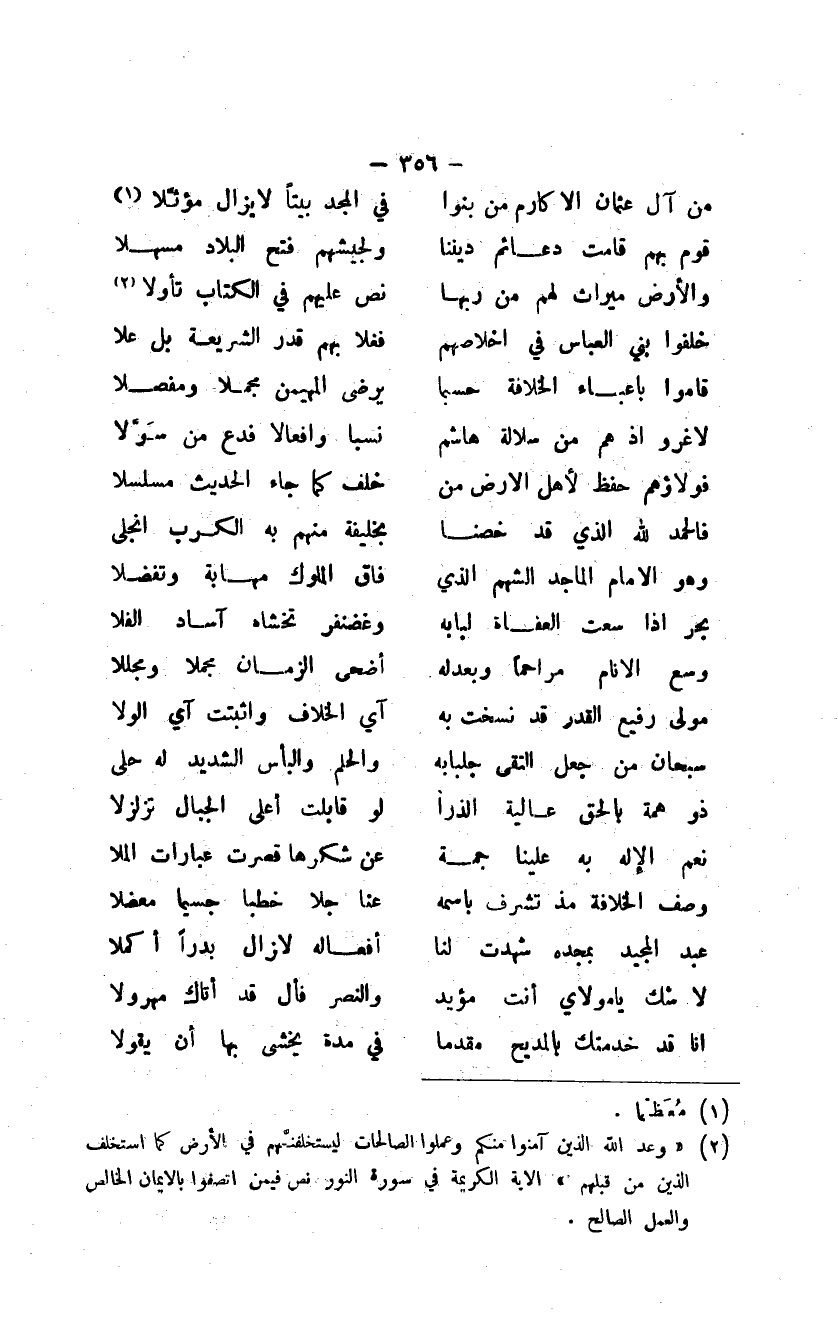 — ٣٥٦ —
من آل عثمان الاكارم من بنوا في المجد بيتاً لايزال مؤثلا (١)
قوم بهم قامت دعائم ديننا ولجيشهم فتح البلاد مسهلا
والأرض ميراث لهم من ربها نص عليهم في الكتاب تأولا (٢)
خلفوا بني العباس في اخلاصهم فغلا بهم قدر الشريعة بل علا
قاموا باعباء الخلافة حسبما يرضى المهيمن مجملا ومفصلا
لاغرو اذ هم من سلالة هاشم نسبا وافعالا فدع من سَوَّلا
فولاؤهم حفظ لأهل الارض من خلف كما جاء الحديث مسلسلا
فالحمد لله الذي قد خصنا بخليفة منهم به الكرب انجلى
وهو الامام الماجد الشهم الذي فاق الملوك مهابة وتفضلا
بحر اذا سعت العفاة لبابه وغضنفر تخشاه آساد الفلا
وسع الانام مراحماً وبعدله أضحى الزمان مجملا ومجللا
مولى رفيع القدر قد نسخت به آي الخلاف واثبتت آي الولا
سبحان من جعل التقى جلبابه والحلم والبأس الشديد له حلى
ذو همة بالحق عالية الذرا لو قابلت أعلى الجبال تزلزلا
نعم الإله به علينا جمة عن شكرها قصرت عبارات الملا
وصف الخلافة مذ تشرف باسمه عنا جلا خطبا جسيما معضلا
عبد المجيد بمجده شهدت لنا أفعاله لازال بدراً أكملا
لا شك يامولاي أنت مؤيد والنصر فأل قد أتاك مهرولا
انا قد خدمتك بالمديح مقدما في مدة يخشى بها أن يقولا
(١) مُعَظّما .
(٢) « وعد الله الذين آمنوا منكم وعملوا الصالحات ليستخلفنَّهم في الأرض كما استخلف
الذين من قبلهم » الاية الكريمة في سورة النور نص فيمن اتصفوا بالايمان الخالص
والعمل الصالح .